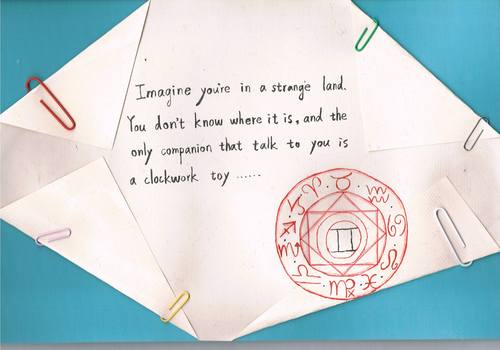 Imagine you're in a strange land.
You don't know where it is, and the
only companion that talk to you is
a clockwork toy ......